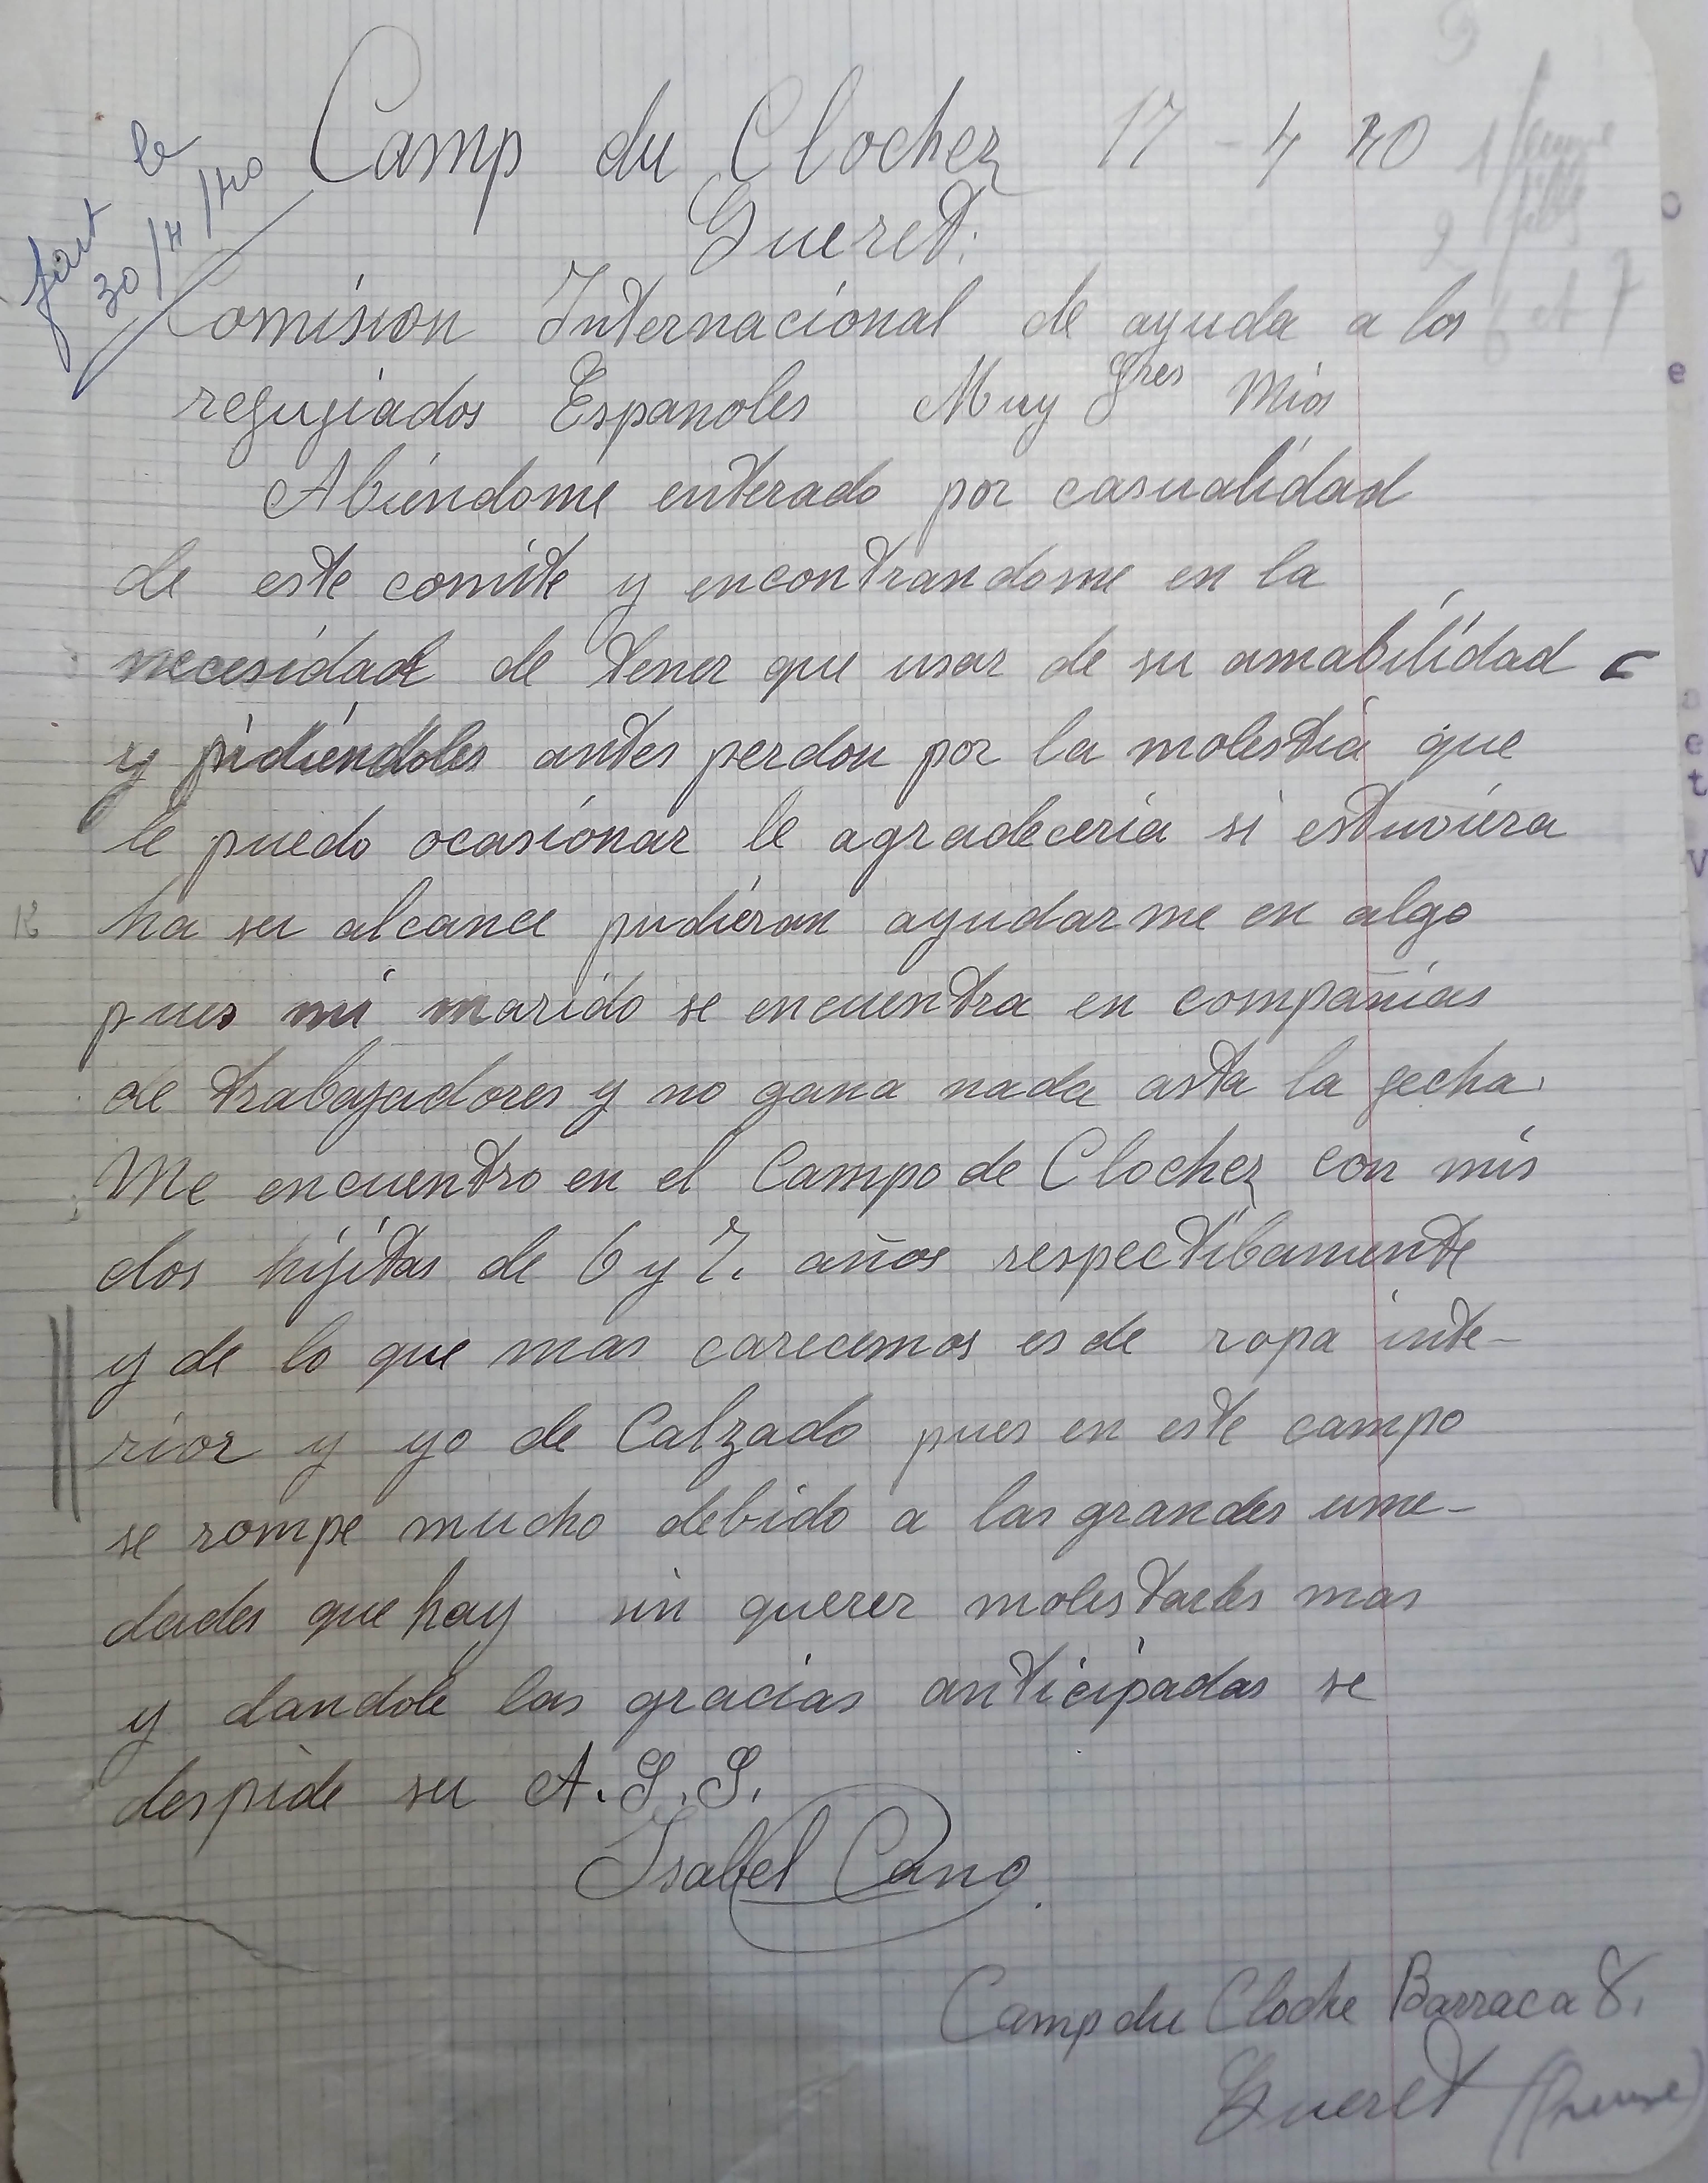 fait le
30/4/40
Camp du Clocher 17 - 4 40
Gueret.
1 femme
2 filles
6 et 7
Comision Internacional de ayuda a los
refugiados Espanoles Muy Sres Mios
Abiendome enterado por casualidad
de este comite y encontrandome en la
necesidad de tener que usar de su amabilidad
y pidiendoles antes perdon por la molestia que
le puedo ocasionar le agradeceria si estuviera
ha su alcance pudieran ayudarme en algo
pues mi marido se encuentra en compañias
de trabajadores y no gana nada asta la fecha.
Me encuentro en el Campo de Clocher con mis
dos hijitas de 6 y 7. años respectibamente
y de lo que mas carecemos es de ropa inte-
rior y yo de Calzado pues en este campo
se rompe mucho debido a las grandes ume-
dades que hay sin querer molestarles mas
y dandole las gracias anticipadas se
despide su A. S. S.
Isabel Cano.
Camp du Cloche Barraca 8.
Gueret (Creuse)